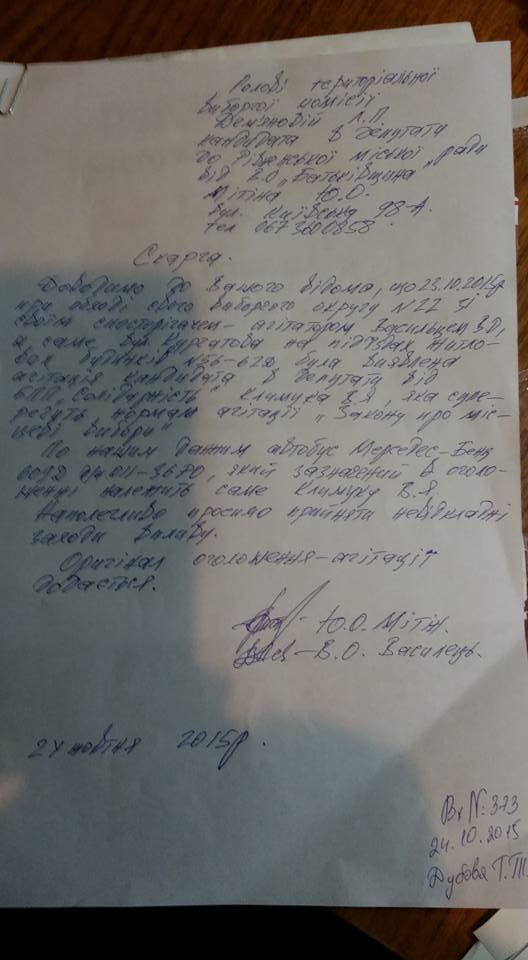 Голові територіальної
виборчої комісії
Дем'яновій Л.П.
кандидата в депутати
до Рівненської міської ради
від В.О. „Батьківщина"
Мітіна Ю.О.
вул. Київська 98-А.
тел 0673600858.
Скарга.
Доводимо до Вашого відома, що 23.10.2015р
при обході свого виборчого округу №22 зі
своїм спостерігачем - агітатором Васильцем В.О,
а саме вул. Курчатова на під'їздах житло-
вих будинків №56-62 була виявлена
агітація кандидата в депутати від
БПП „Солідарність" Климука В.Я, яка супе-
речить нормам агітації „Закону про міс-
цеві вибори"
По нашим данним автобус Мерседес-Бенц
011-3670, який зазначений в оголо-
шенні належить саме Климуку В.Я.
Наполегливо просимо прийняти невідкладні
заходи впливу.
Оригінал оголошення-агітації
додається.
Ю.О. Мітін.
В.О. Василець.
24 жовтня 2015р.
Вх №: 373
24.10.2015
Дубова Т.